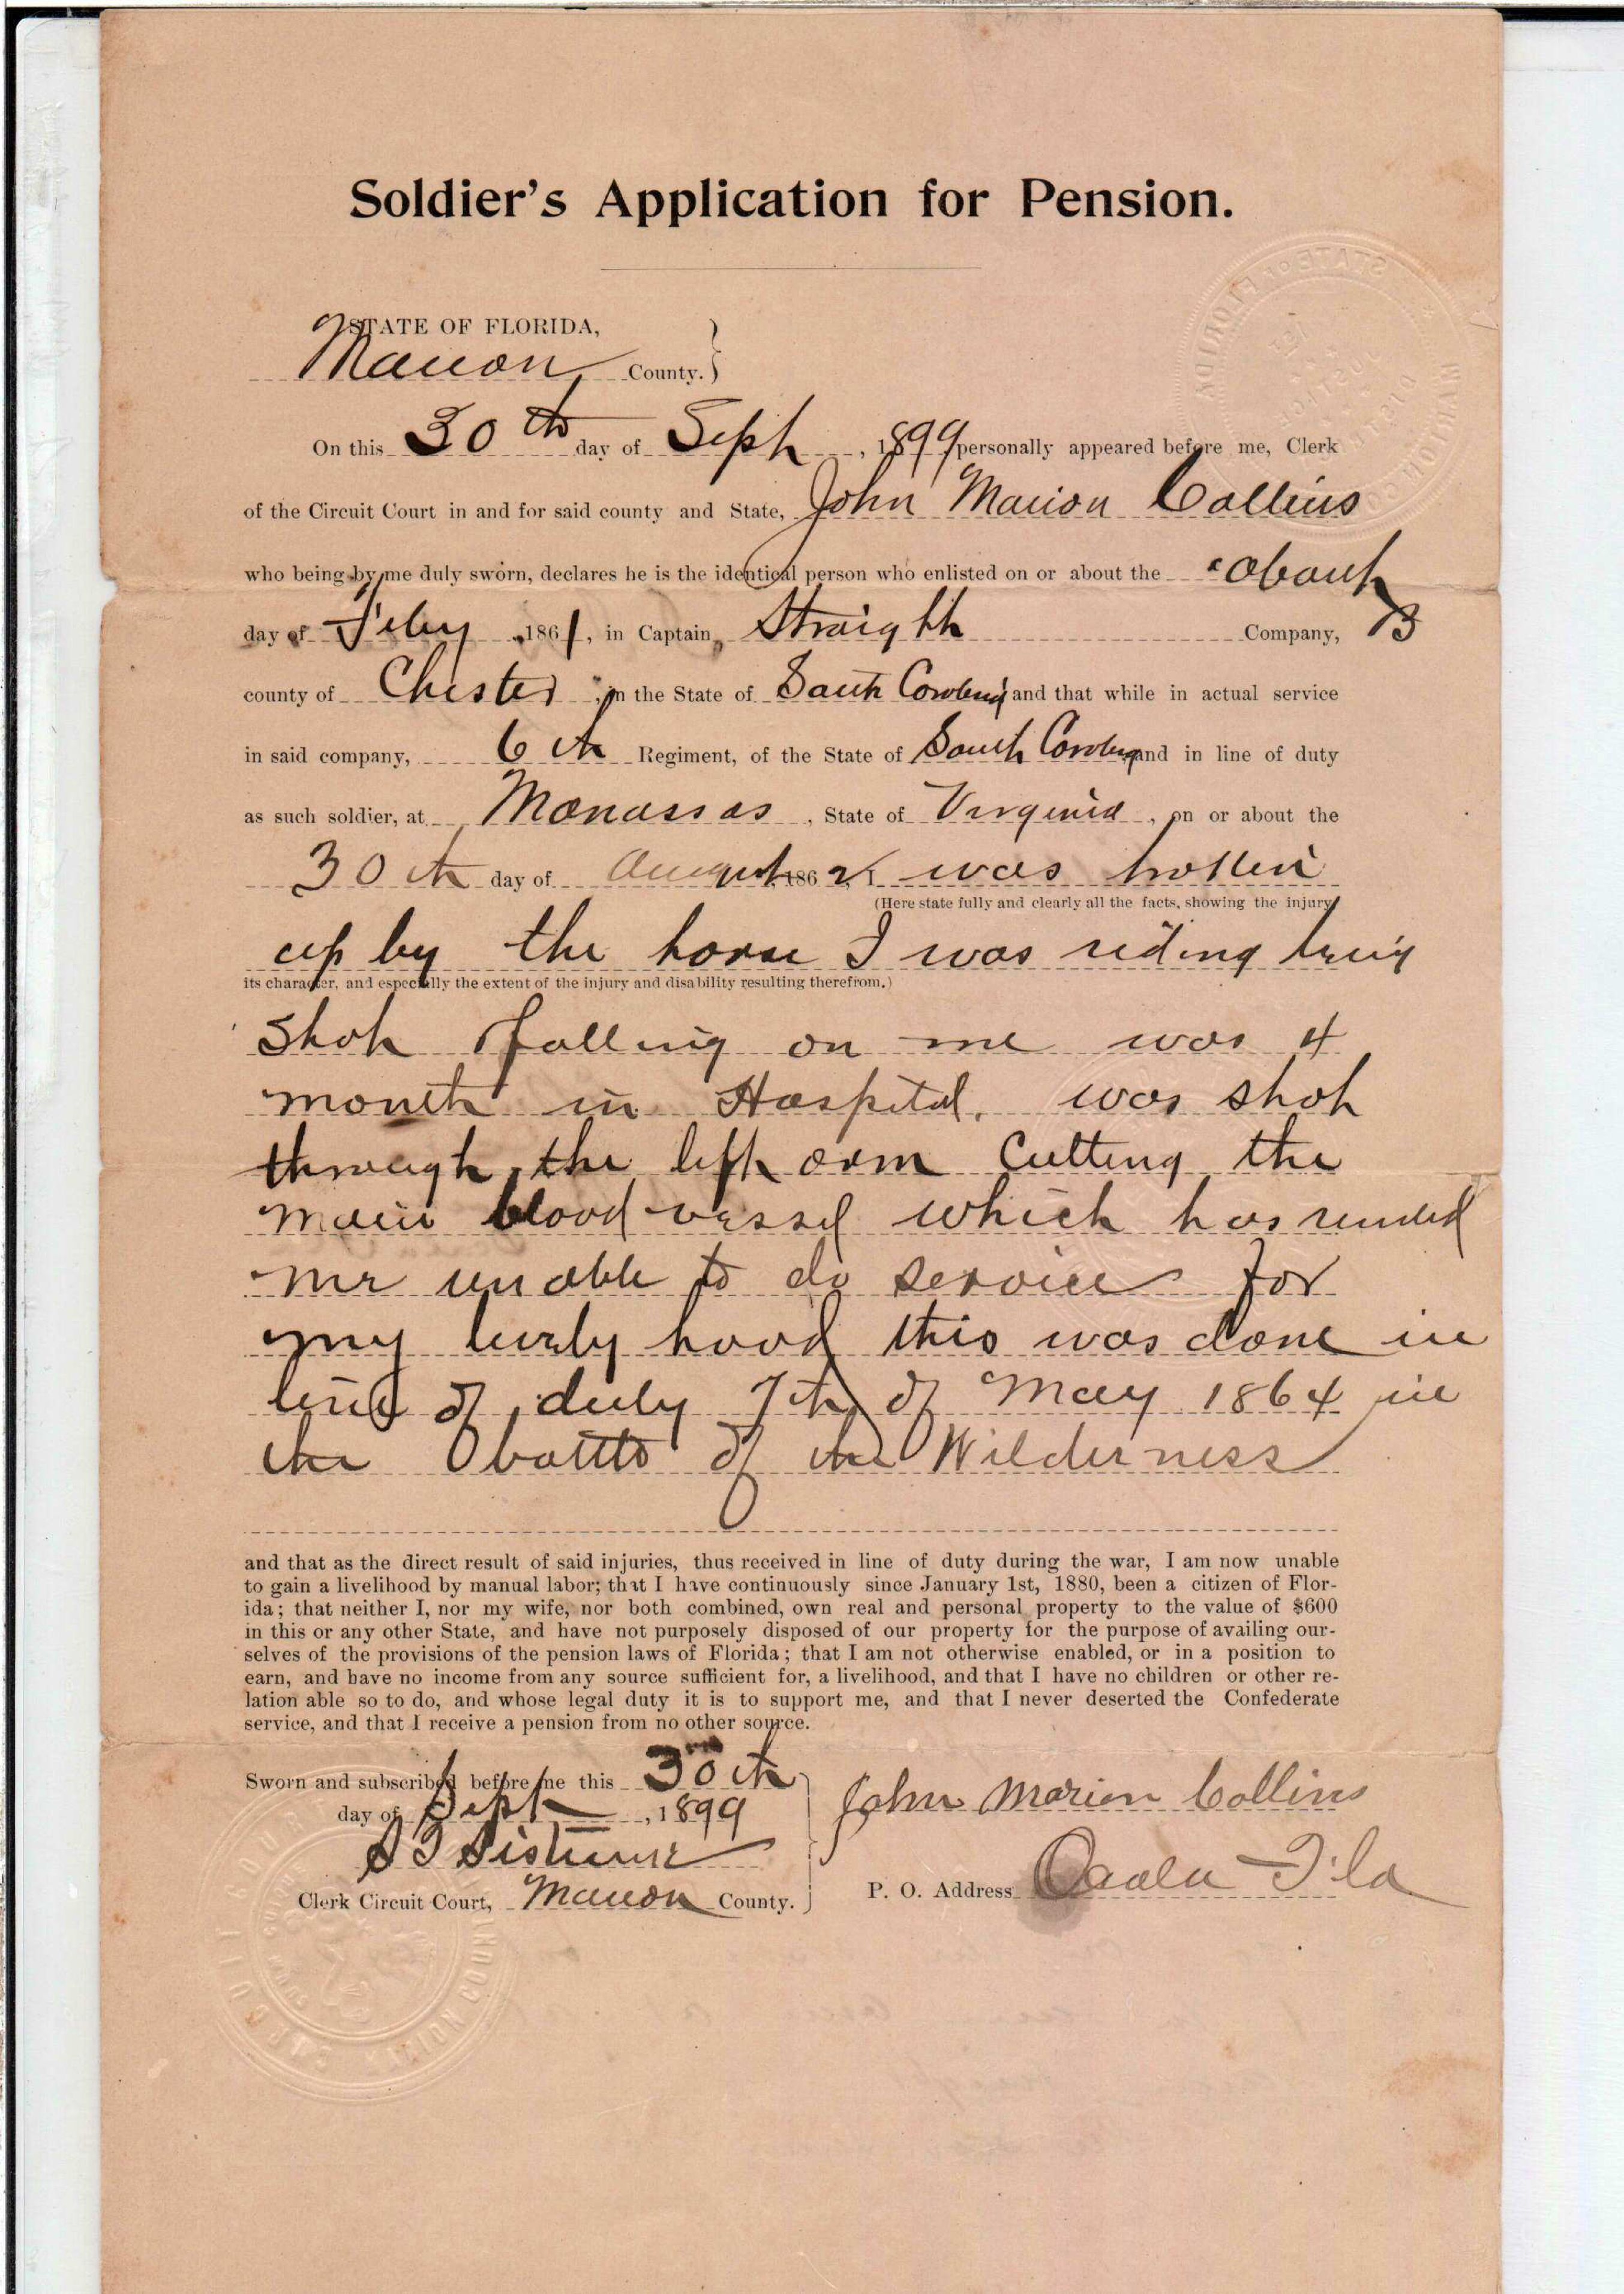 Soldier's Application for Pension.
STATE OF FLORIDA,
Marion County.
On this 30th day of Sept, 1899 personally appeared before me, Clerk
of the Circuit Court in and for said county and State, John Marion Collins
who being by me duly sworn, declares he is the identical person who enlisted on or about the about
day of Feby, 1861, in Captain Straight Company, B
county of Chester, in the State of South Carolina and that while in actual service
in said company, 6th Regiment, of the State of South Carolina and in line of duty
as such soldier, at Manassas, State of Virginia, on or about the
30th day of August, 1862, I was
(Here state fully and clearly all the facts, showing the injury,
up by the horse I was riding being
its character, and especially the extent of the injury and disability resulting therefrom.)
Shot & falling on me was 4
month in Hospital. was shot
through the left arm Cutting the
main blood vessel which has rended
me unable to do service for
my lively hood this was done in
line of duty 7th of May 1864 in
the battle of the Wilderness
and that as the direct result of said injuries, thus received in line of duty during the war, I am now unable
to gain a livelihood by manual labor; that I have continuously since January 1st, 1880, been a citizen of Flor-
ida; that neither I, nor my wife, nor both combined, own real and personal property to the value of $600
in this or any other State, and have not purposely disposed of our property for the purpose of availing our-
selves of the provisions of the pension laws of Florida; that I am not otherwise enabled, or in a position to
earn, and have no income from any source sufficient for, a livelihood, and that I have no children or other re-
lation able so to do, and whose legal duty it is to support me, and that I never deserted the Confederate
service, and that I receive a pension from no other source.
Sworn and subscribed before me this 30th
day of Sept, 1899
John Marion Collins
S T Sistrunk
Clerk Circuit Court, Marion County.
P. O. Address Ocala Fla